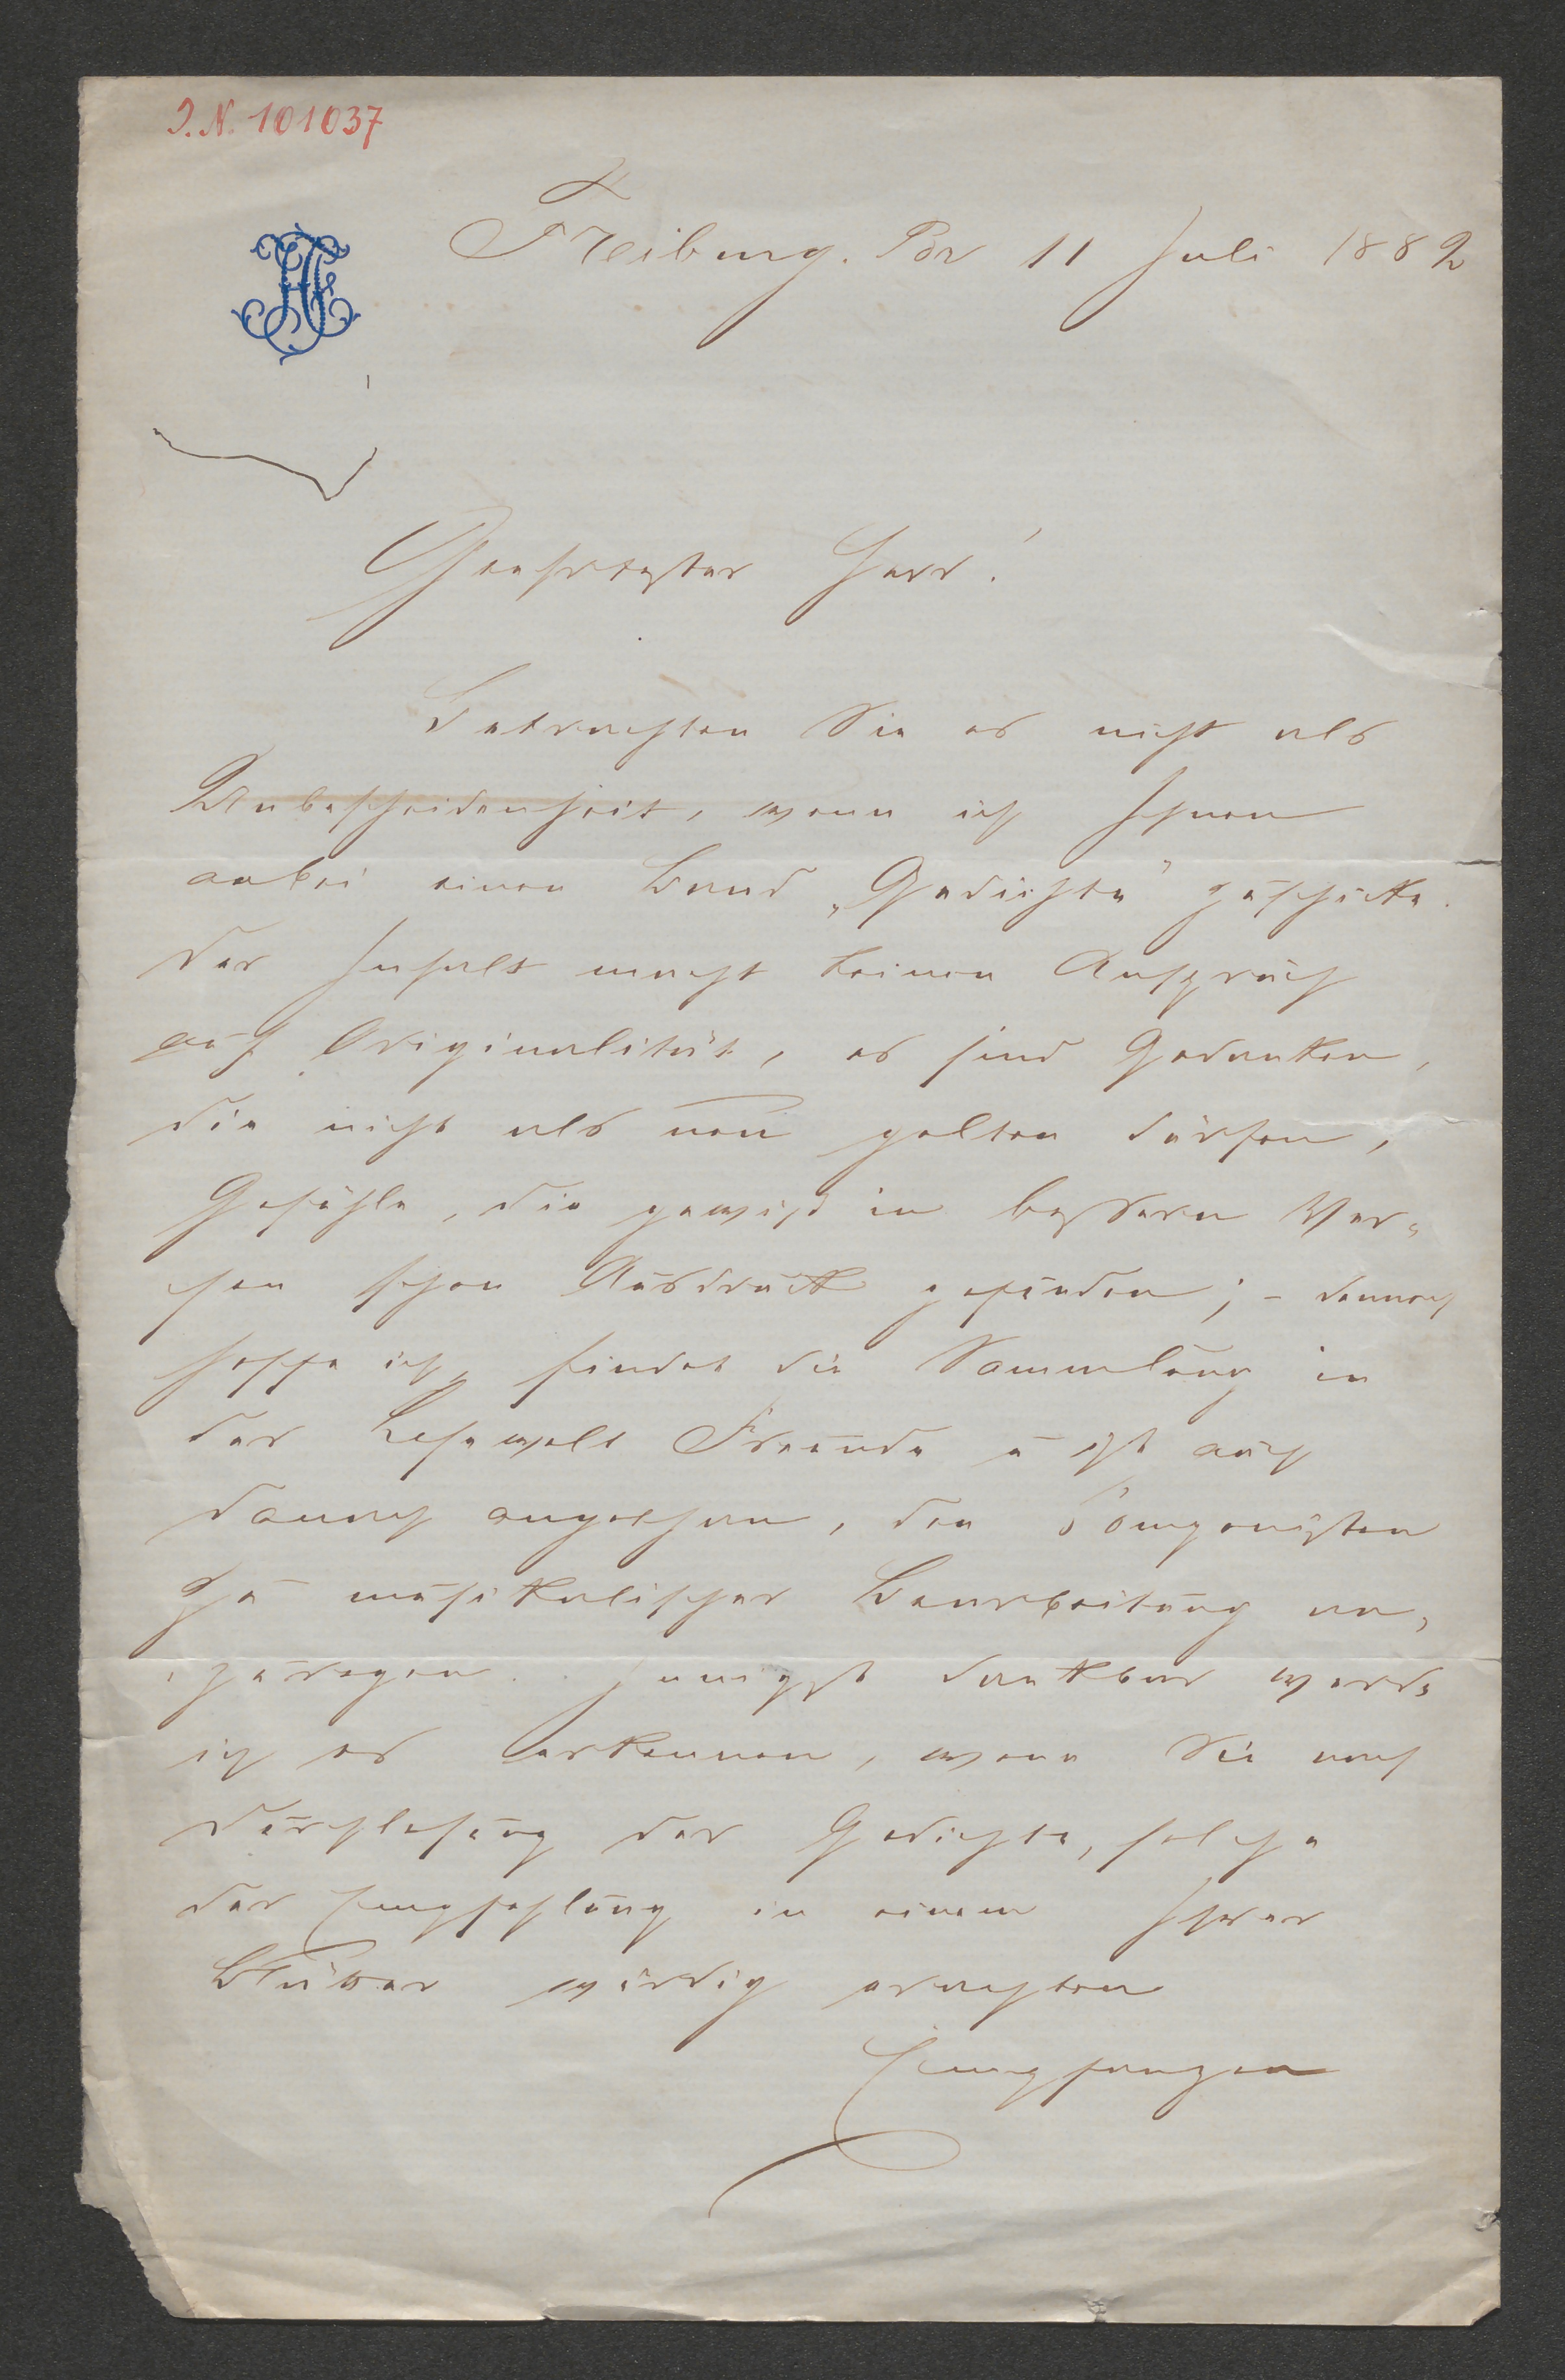 I.N. 101037
Freiburg. Br 11 Juli 1882
Geehrtester Herr!
Betrachten Sie es nicht als
Unbescheidenheit, wenn ich Ihnen
anbei einen Band „Gedichte" zuschicke.
Der Inhalt macht keinen Anspruch
auf Originalität, es sind Gedanken,
die nicht als neu gelten dürfen,
Gefühle, die gewiß in bessern Ver-
sen schon Ausdruck gefunden; – dennoch
hoffe ich, findet die Sammlung in
der Lesewelt Freunde u ist auch
danach angethan, den Componisten
zu musikalischer Bearbeitung an-
zuregen. Innigst dankbar werde
ich es erkennen, wenn Sie nach
Durchlesung der Gedichte, solche
der Empfehlung in einem Ihrer
Blätter würdig erachten
Empfangen